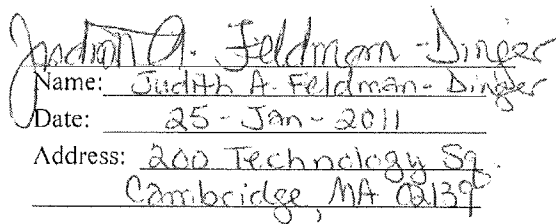 Judith A. Feldman-Dingler
Name: Judith A. Feldman-Dingler
Date: 25-Jan-2011
Address: 200 Technology Sq.
Cambridge, MA 02139